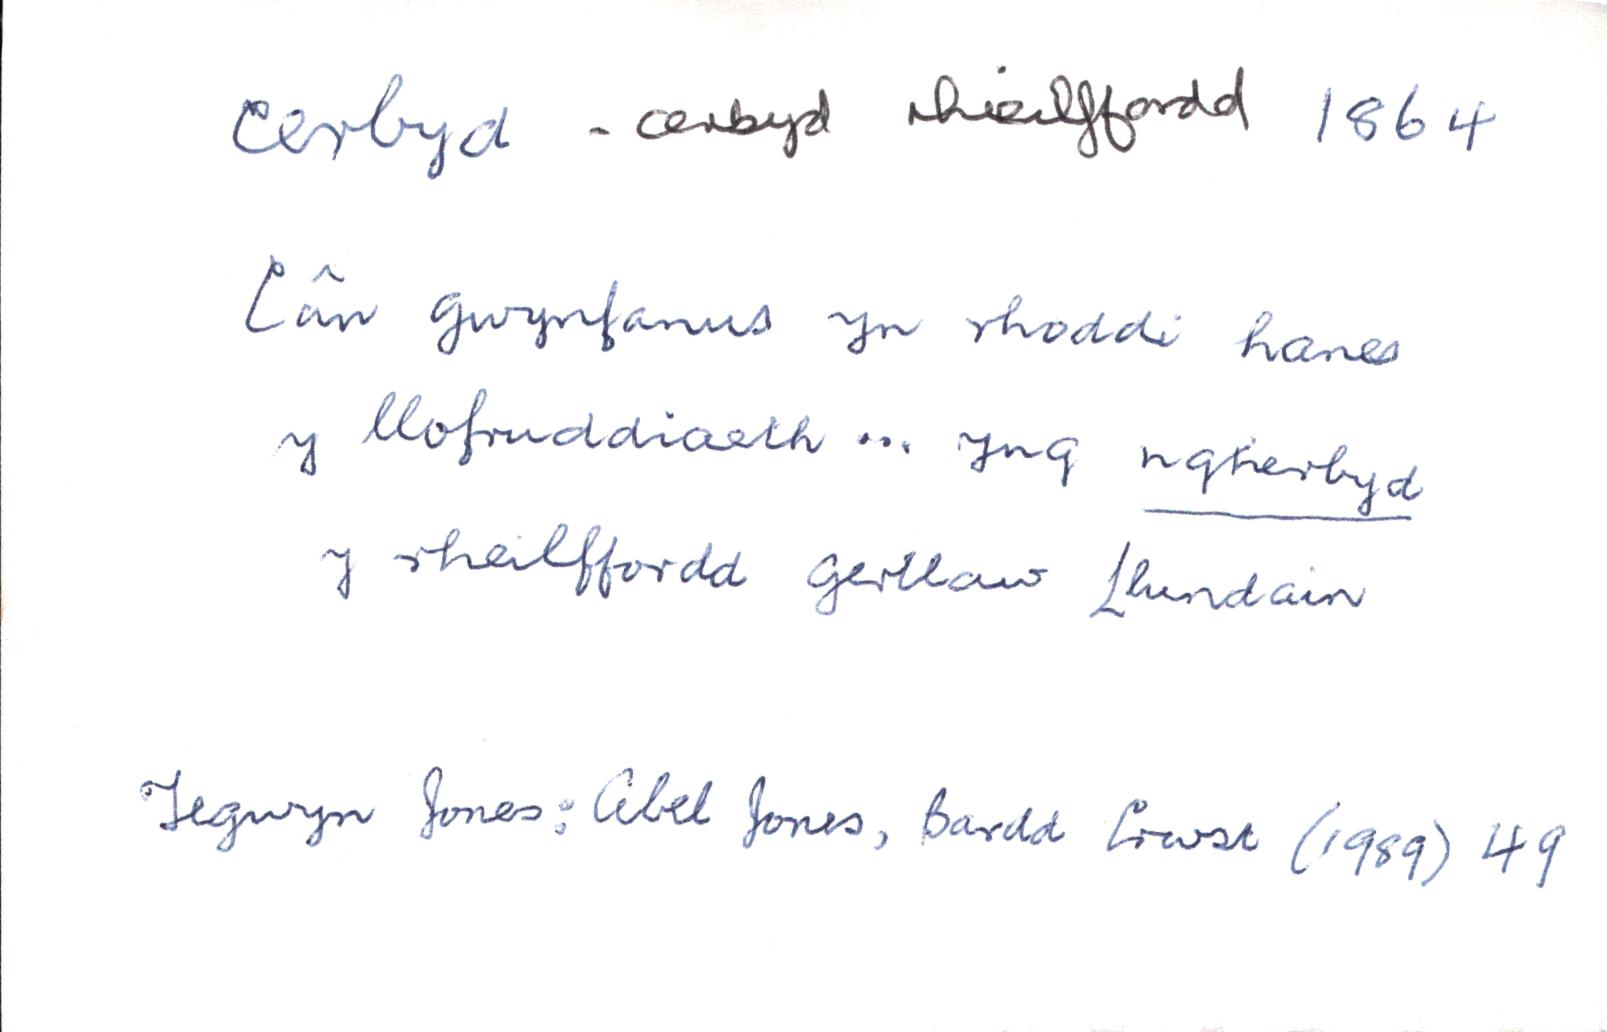 Cerbyd - cerbyd rheilffordd 1864
Cân gwynfanus yn rhoddi hanes
y llofruddiaeth ... yng ngherbyd
y rheilffordd gerllaw Llundain
Tegwyn Jones: Abel Jones, Bardd Crwst (1989) 49